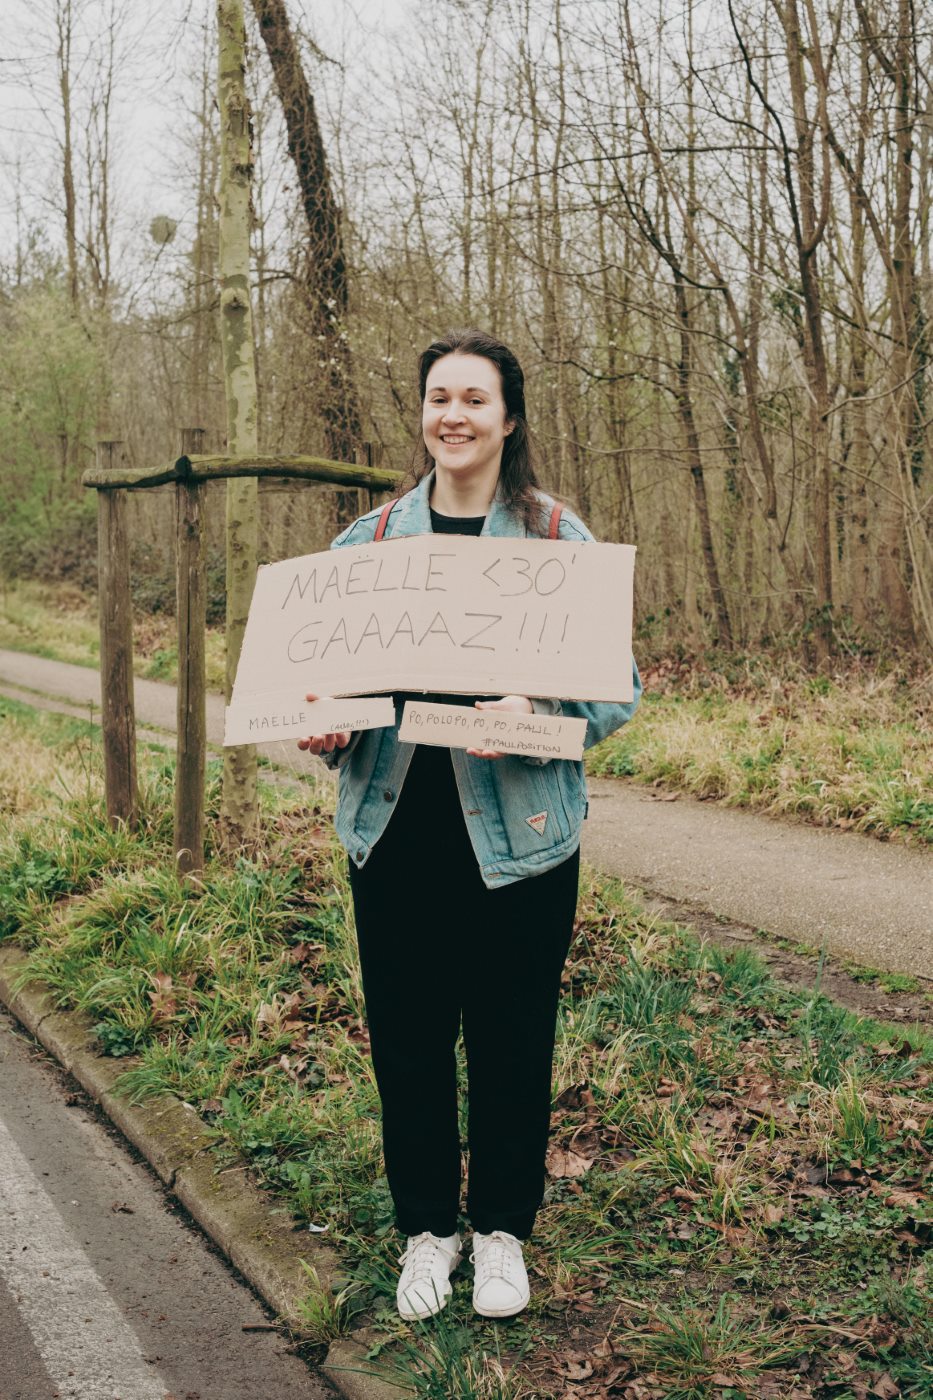 MAËLLE <30'
GAAAAZ!!!
MAELLE
PO, POLOPO, PO, PO, PAUL !
#PAULPOSITION